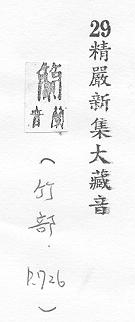 29精嚴新集大藏音
音
（竹部. P.726）